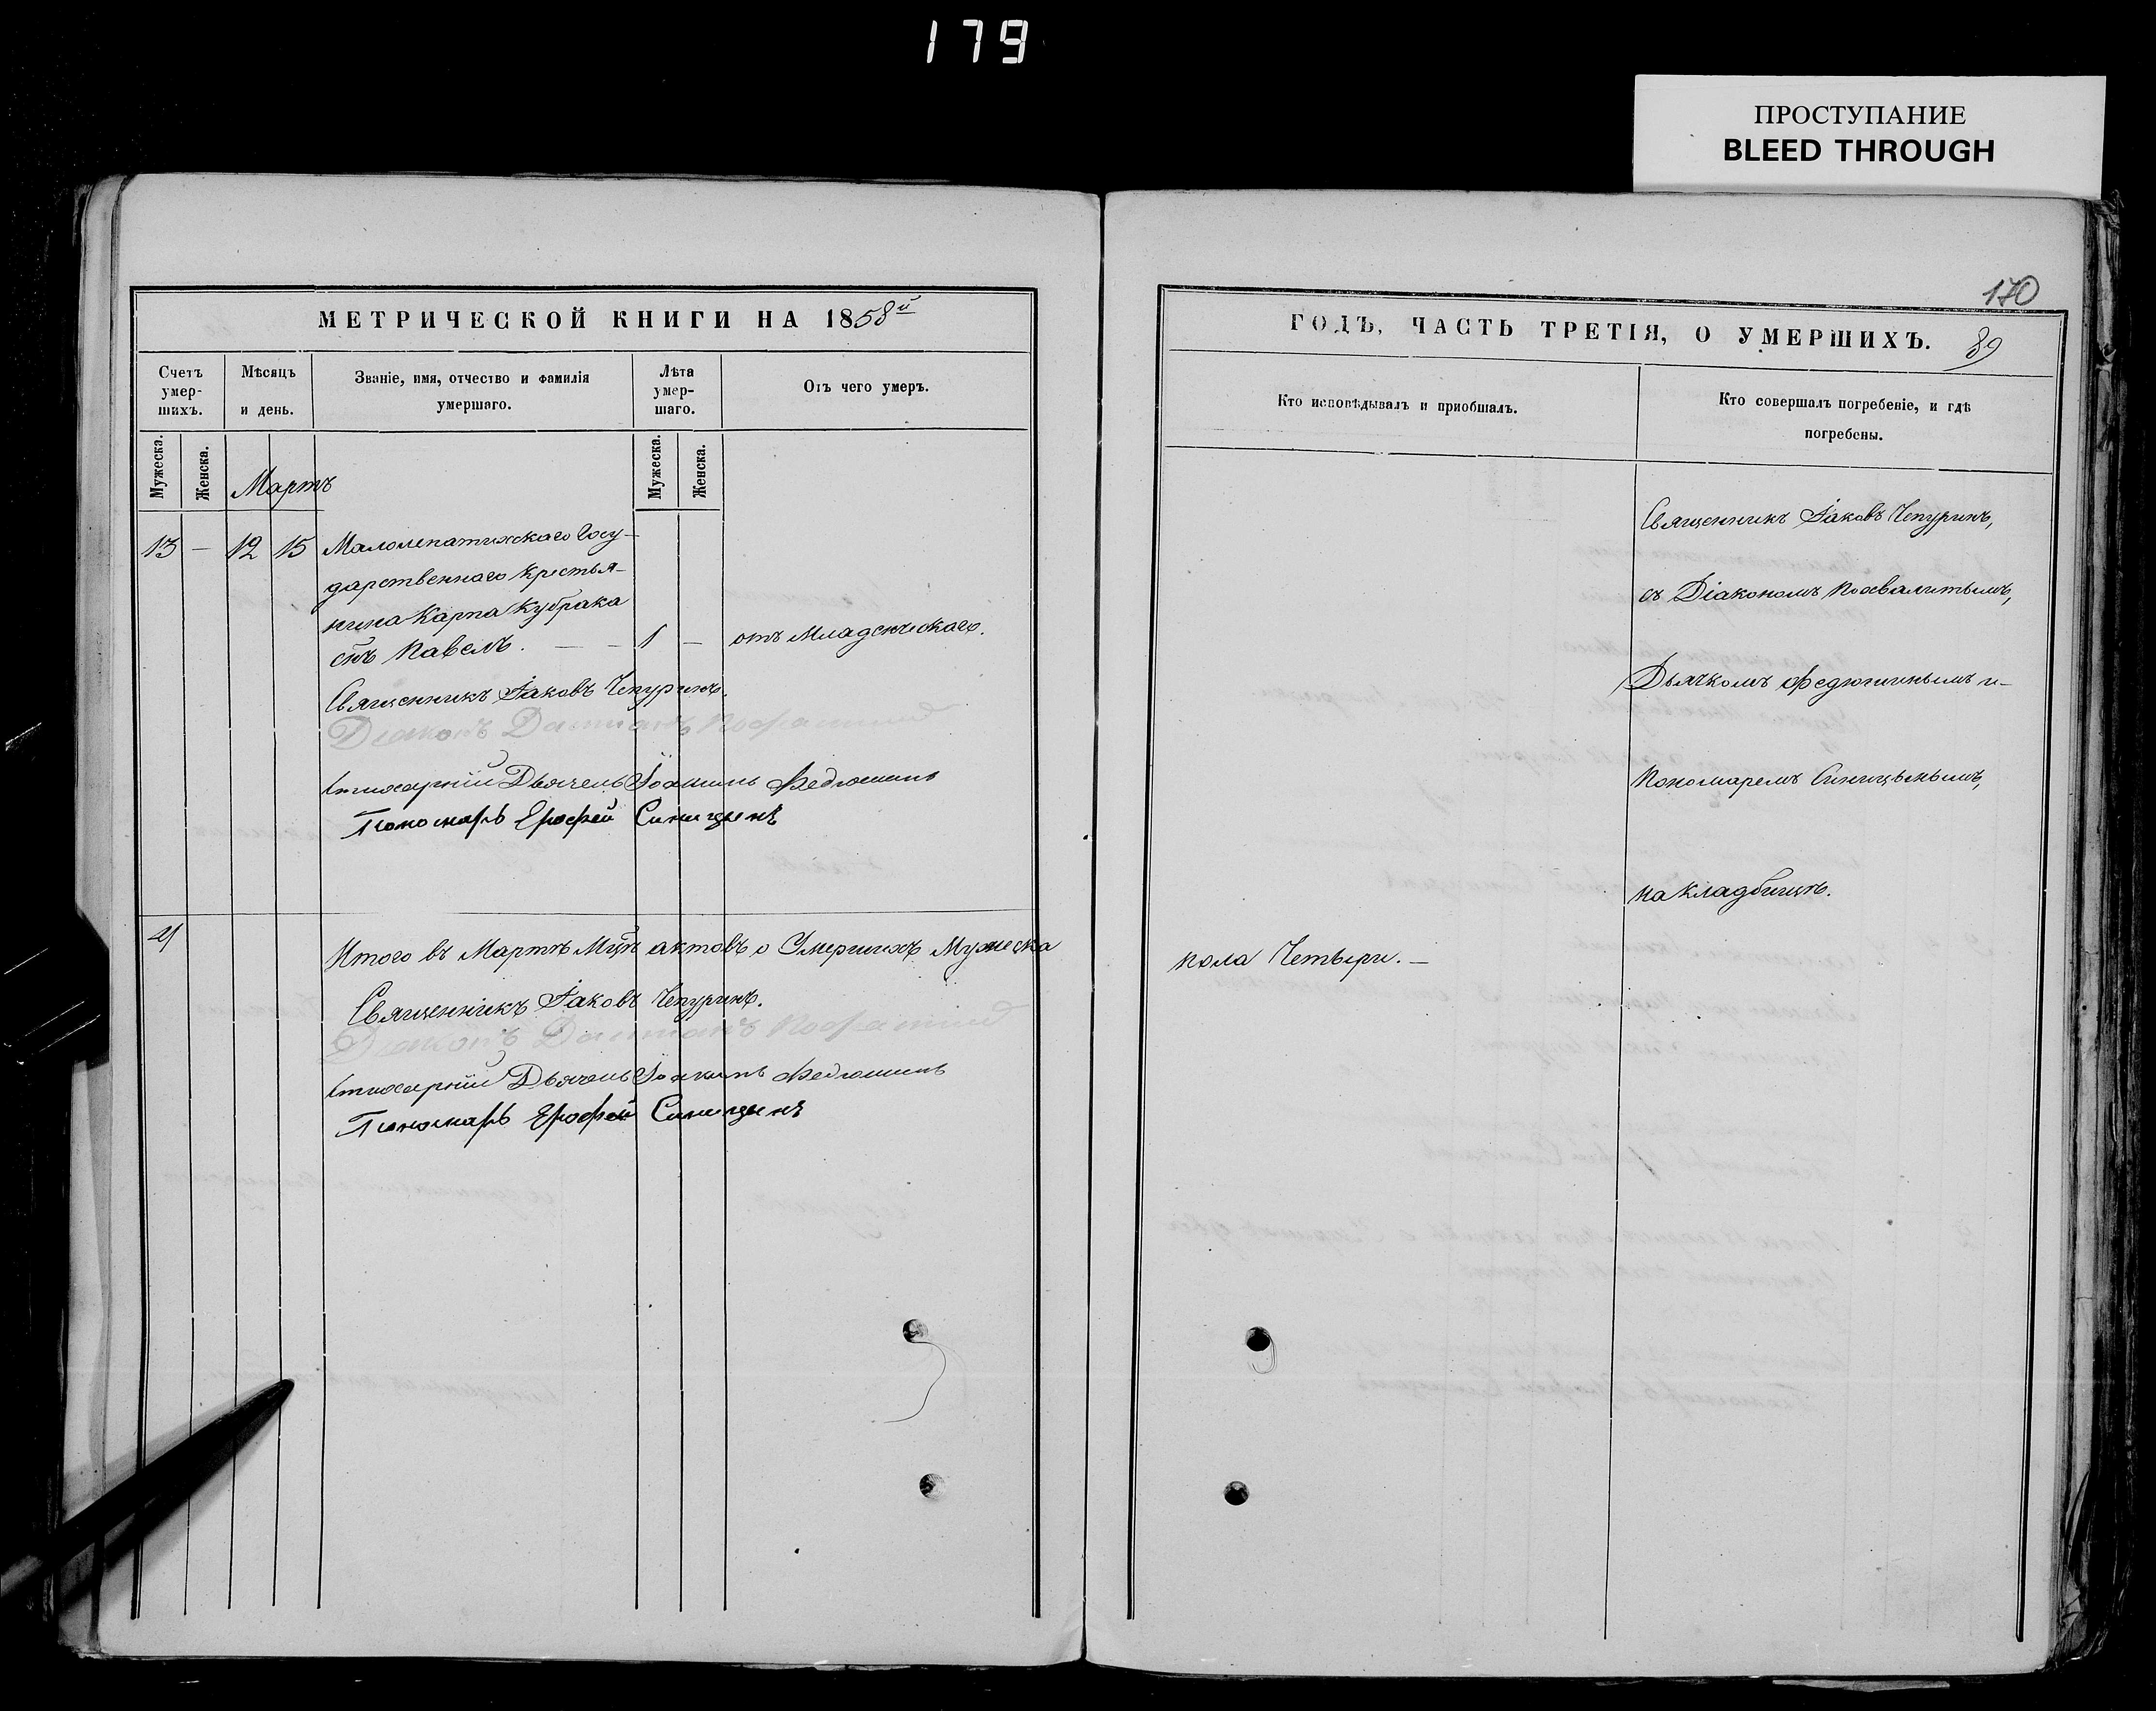 179
ПРОСТУПАНИЕ
BLEED THROUGH
170
МЕТРИЧЕСКОЙ КНИГИ НА 1858й
Счетъ умер-шихъ.
Мѣсяцъ и день.
Званіе, имя, отчество и фамилія умершаго.
Лѣта умер-шаго.
Отъ чего умеръ.
Мужеска.
Женска.
Мужеска.
Женска.
Мартъ
13 — 12 15 Малолепатихскаго Госу-
дарственнаго крестья-
нина Карпа Кубрака
снъ Павелъ. — — 1 — отъ Младенческаго.
Священникъ Іаковъ Чепуринъ.
Діаконъ Даміанъ
Стихарный Дьячекъ Іоакимъ Федюшинъ
Пономарь Ерофей Синицынъ
4
Итого въ Мартѣ Мцѣ актовъ о Умершихъ Мужеска
Священникъ Іаковъ Чепуринъ.
Діаконъ Даміанъ
Стихарный Дьячекъ Іоакимъ Федюшинъ
Пономарь Ерофей Синицынъ
ГОДЪ, ЧАСТЬ ТРЕТІЯ, О УМЕРШИХЪ.
89
Кто исповѣдывалъ и пріобщалъ.
Кто совершалъ погребеніе, и гдѣ
погребены.
Священникъ Іаковъ Чепуринъ,
съ Діакономъ
Дьячкомъ Федюшинымъ и-
Пономаремъ Синицынымъ,
на кладбищѣ.
пола Четыри. —